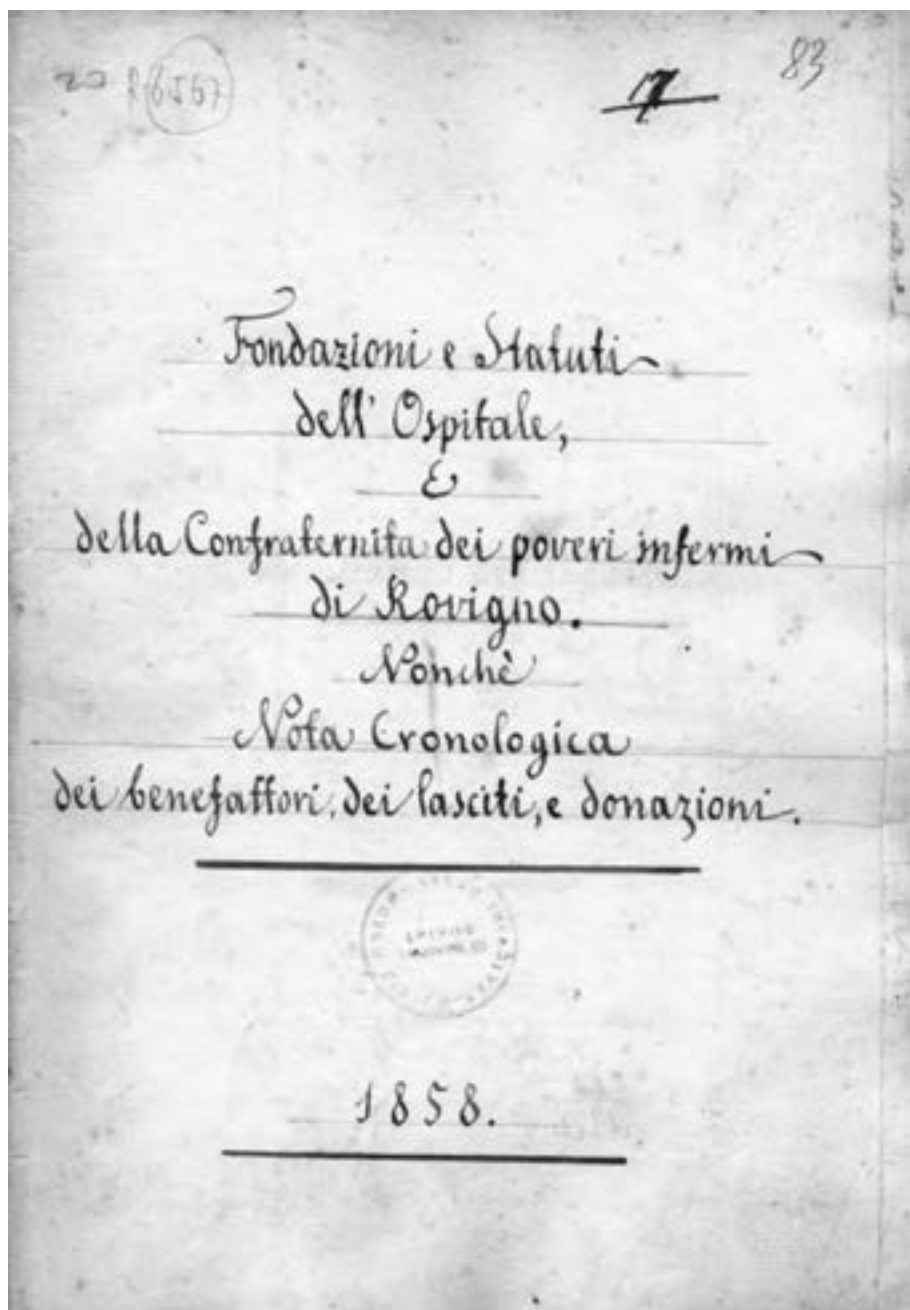 83
17
Fondazioni e Statuti
dell' Ospitale,
E
della Confraternita dei poveri infermi
di Rovigno.
Nonchè
Nota Cronologica
dei benefattori, dei lasciti, e donazioni.
1858.